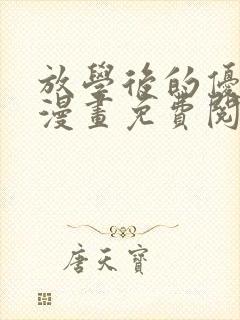 放學後的優
漫畫免費閱
唐天寶